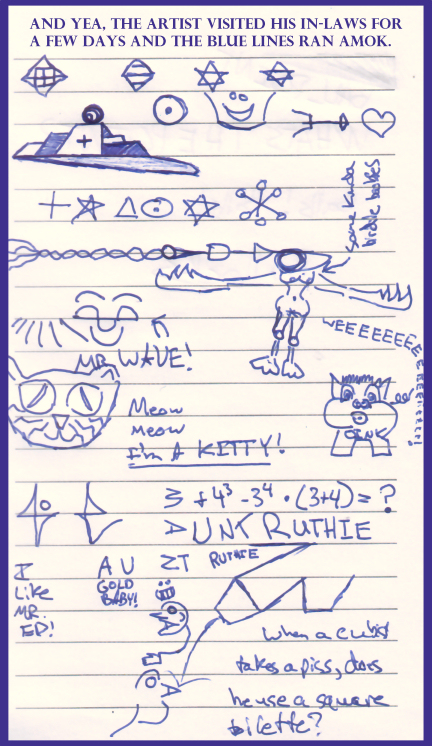 AND YEA, THE ARTIST VISITED HIS IN-LAWS FOR
A FEW DAYS AND THE BLUE LINES RAN AMOK.
some kinda
birdie babies
WEEEEEEEE
MR. WAVE!
Meow
Meow
I'm A KITTY!
OINK
+4³ -3⁴ · (3+4) = ?
AUNT RUTHIE
AU
GOLD
BABY!
ΣT
RUTHIE
I
Like
MR.
ED!
When a cubist
takes a piss, does
he use a square
toilette?